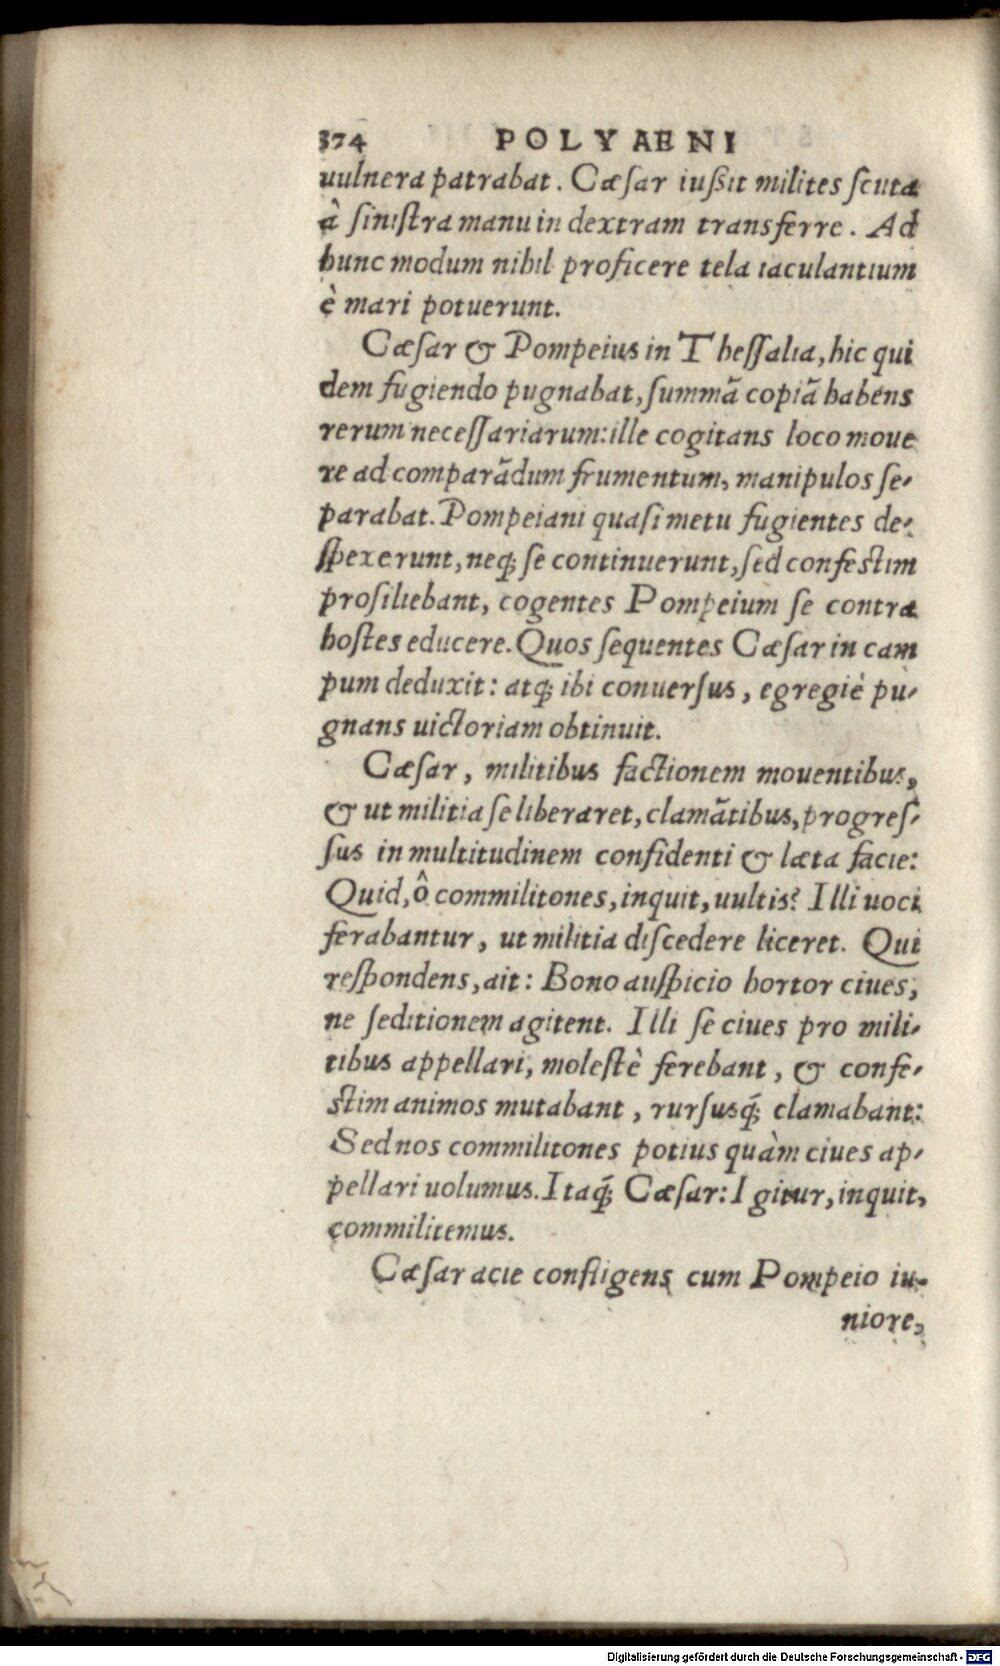 374 POLYAENI
uulnera patrabat. Cæſar iußit milites ſcuta
à ſiniſtra manu in dextram transferre. Ad
hunc modum nihil proficere tela iaculantium
è mari potuerunt.
Cæſar & Pompeius in Theſſalia, hic qui
dem fugiendo pugnabat, ſummã copiã habens
rerum neceſſariarum: ille cogitans loco moue
re ad comparãdum frumentum, manipulos ſe-
parabat. Pompeiani quaſi metu fugientes de-
ſpexerunt, neq; ſe continuerunt, ſed confeſtim
proſiliebant, cogentes Pompeium ſe contra
hoſtes educere. Quos ſequentes Cæſar in cam
pum deduxit: atq; ibi conuerſus, egregiè pu-
gnans uictoriam obtinuit.
Cæſar, militibus factionem mouentibus,
& ut militia ſe liberaret, clamãtibus, progreſ-
ſus in multitudinem confidenti & læta facie:
Quid, ô commilitones, inquit, uultis? Illi uoci
ferabantur, ut militia diſcedere liceret. Qui
reſpondens, ait: Bono auſpicio hortor ciues,
ne ſeditionem agitent. Illi ſe ciues pro mili-
tibus appellari, moleſtè ferebant, & confe-
ſtim animos mutabant, rurſusq́; clamabant:
Sed nos commilitones potius quàm ciues ap-
pellari uolumus. Itaq́; Cæſar: Igitur, inquit,
commilitemus.
Cæſar acie confligens cum Pompeio iu-
niore,
Digitalisierung gefördert durch die Deutsche Forschungsgemeinschaft - DFG